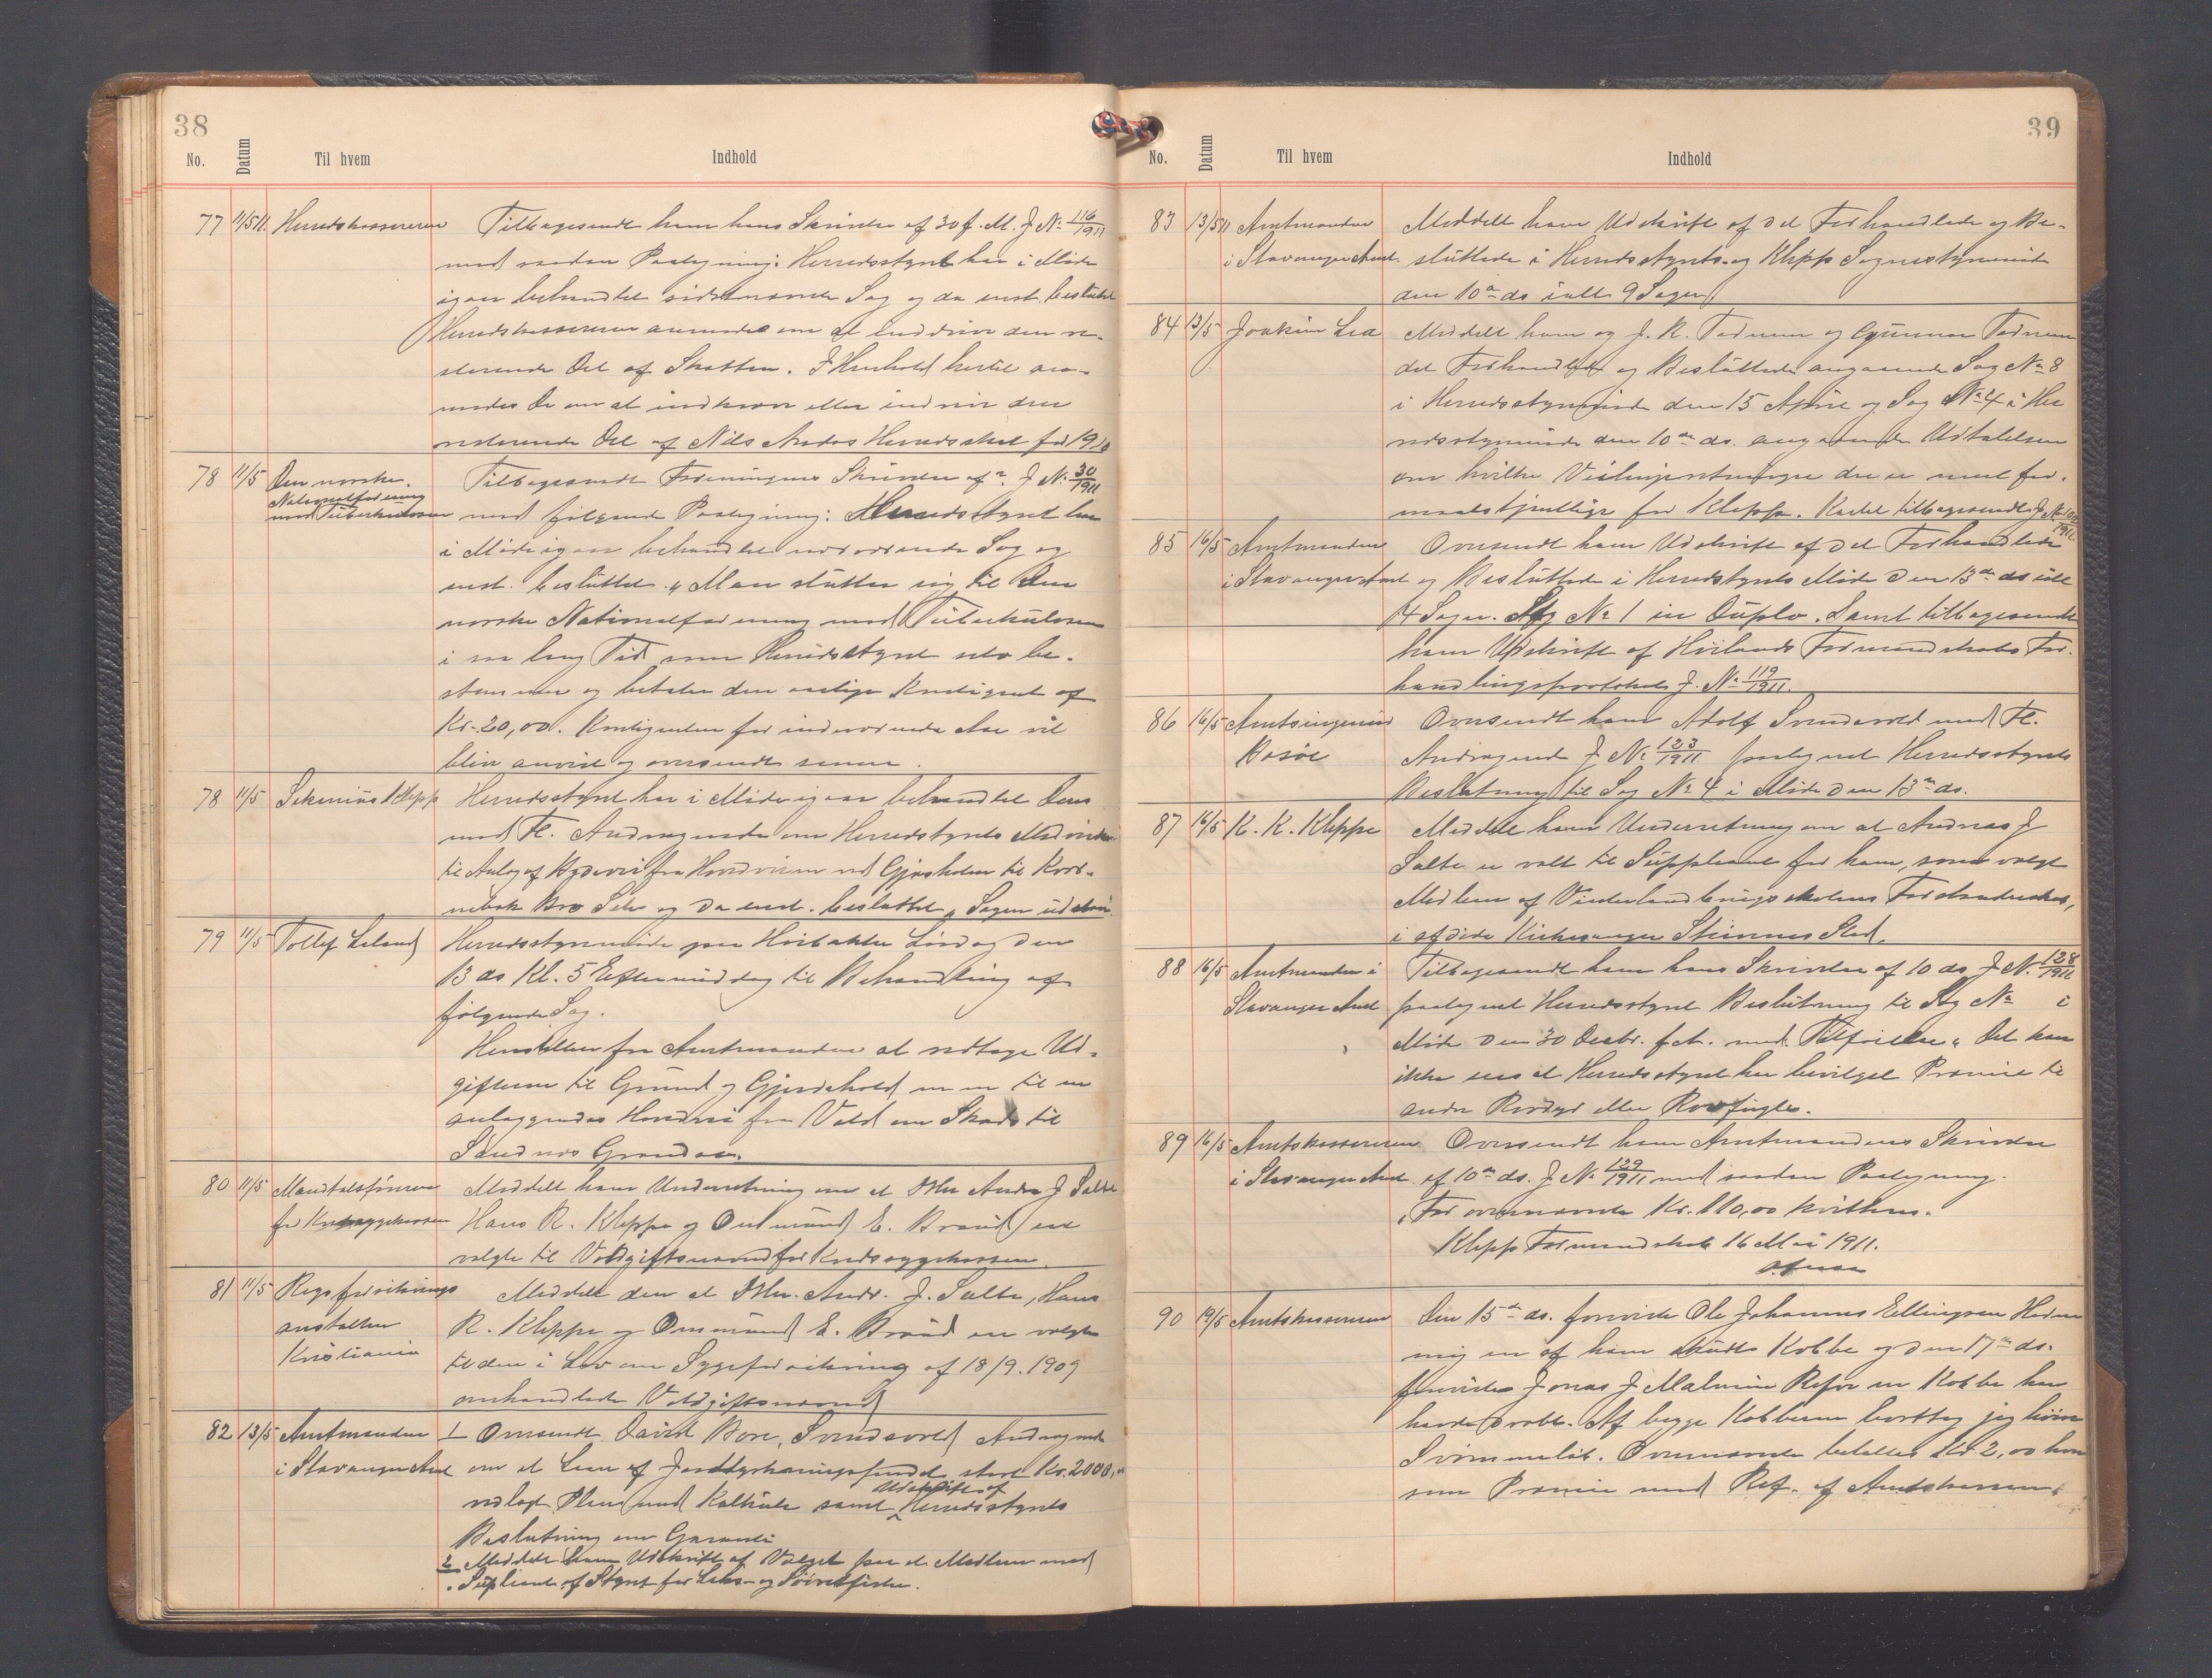 38
No. Datum Til hvem Indhold
77 11/5 11. Herredskassereren Tilbagesendt ham hans Skrivelse af 30 f. M. J. № 116/1911
med saadan Paategning: Herredsstyret har i Møde
igaar behandlet sidstnævnte Sag og da enst. besluttet
Herredskassereren anmodes om at inddrive den re-
sterende Del af Skatten. I Henhold hertil an-
modes De om at indkræve eller inddrive den
resterende Del af Nils Herredsskat for 1910
78 11/5 Den norske Tilbagesendt Foreningens Skrivelse af ? J № 30/1911
Nationalforening
mod Tuberkulosen med følgende Paategning: Herredsstyret har
i Møde igaar behandlet nærværende Sag og
enst. besluttet „Man slutter sig til Den
norske Nationalforening mod Tuberkulosen
i saa lang Tid som Herredsstyret selv be-
stemmer og betaler den aarlige Kontigent af
Kr. 20,00. Kontigenten for indeværende Aar vil
blive anvist og oversendt senere.
78 11/5 Klepp Herredsstyret har i Møde igaar behandlet Deres
med Fl. Andragende om Herredsstyrets Medvirken
til Anlæg af Bygdevei fra Hovedveien ved Gjesholen til
Bro Sele og da enst. besluttet „Sagen
79 11/5 Tollef Leland Herredsstyremøde paa Lørdag den
13 ds Kl. 5 Eftermiddag til Behandling af
følgende Sag.
Henstillen fra Amtmanden at vedtage Ud-
gifterne til Grund og Gjerdehold m m til en
anlæggendes Hovedvei fra om Skads til
Sandnes Grændse.
80 11/5 Mandtalsføreren Meddelt ham Underretning om at DHrr Andr. J Salte
for Kredssygekassen Hans R. Kleppe og Omund E. Braud er
valgte til Voldgiftsnævnd for Kredssygekassen.
81 11/5 Rigsforsikrings Meddelt den at DHrr. Andr. J. Salte, Hans
anstalten R. Kleppe og Ommund E. Braud er valgte
Kristiania til den i Lov om Sygeforsikring af 18/9. 1909
omhandlede Voldgiftsnævnd
82 13/5 Amtmanden 1 Oversendt David Bore, Andragende
i Stavanger Amt om et Laan af Jorddyrkningsfondet stort Kr. 2000,00
vedlagt Plan med Kalkule samt Udskrift af Herredsstyrets
Beslutning om Garanti
2 Meddelt ham Udskrift af Valget paa et Medlem med
Supleant af Styret for Lakse- og Sjøørretfisket.
39
No. Datum Til hvem Indhold
83 13/5 11 Amtmanden Meddelt ham Udskrift af det Forhandlede og Be-
i Stavanger Amt. sluttede i Herredsstyrets- og Klepp Sognestyremøde
den 10de ds ialt 9 Sager
84 13/5 Joakim Lea Meddelt ham og J. R. Tednem og Gunnar Tednem
det Forhandlede og Besluttede angaaende Sag № 8
i Herredsstyremøde den 15 April og Sag № 4 i Her
redsstyremøde den 10de ds. angaaende Udtalelsen
om hvilke der er mest for-
maalstjenllige for Kleppe. Kartet tilbagesendt J №
85 16/5 Amtmanden Oversendt ham Udskrift af det Forhandlede
i Stavanger Amt og Besluttede i Herredsstyrets Møde den 13de ds ialt
4 Sager. Sag № 1 in Duplo. Samt tilbagesendt
ham Udskrift af Høilands Formandskabs For-
handlingsprotokol J. № 119/1911.
86 16/5 Amtsingeniør Oversendt ham Adolf med Fl.
Bosøe Andragende J № 123/1911 paategnet Herredsstyrets
Beslutning til Sag № 4 i Møde den 13de ds.
87 16/5 R. R. Kleppe Meddelt ham Underretning om at Andreas J
Salte er valt til Suppleant for ham, som valgt
Medlem af Vinterlandbrugsskolens Forstanderskab,
i afdøde Kirkesanger Sted.
88 16/5 Amtmanden i Tilbagesendt ham hans Skrivelse af 10 ds. J №. 128/1911
Stavanger Amt paategnet Herredsstyret Beslutning til Sag № i
Møde den 30 Decbr. f. A. med Tilføielse „Det kan
ikke sees at Herredsstyret har bevilget Præmie til
andre Rovdyr eller Rovfugle.
89 16/5 Amtskassereren Oversendt ham Amtmandens Skrivelse
i Stavanger Amt af 10de ds. J № 129/1911 med saadan Paategning.
„For ovennævnte Kr. 110,00 kvitteres.
Klepp Formandskab 16 Mai 1911.
90 19/5 Amtskassereren Den 15de ds. foreviste Ole Johannes Ellingsen
mig en af ham skudt Kobbe og den 17de ds.
foreviste Jonas J Malmin Refve en Kobbe han
havde dræbt. Af begge Kobberne borttog jeg høire
Svømmelab. Ovennævnte betaltes Kr. 2,00 hver
som Præmie med Ref. af Amtskassen.